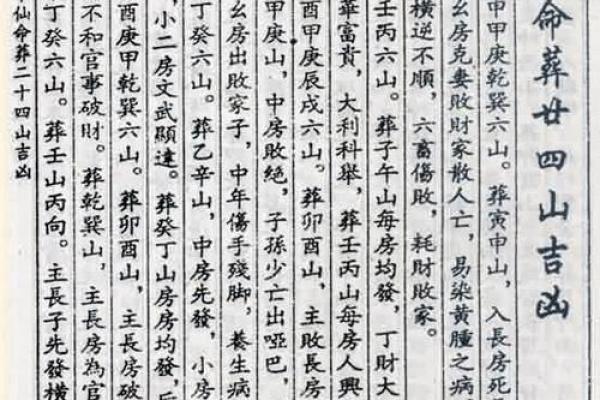 命葬廿四山吉凶
申甲庚乾巽六山。葬寅申山,入長房死
幺房克妻敗財家散人亡,易染黃腫之病
橫逆不順,六畜傷敗,耗財敗家。
壬丙六山。葬子午山每房均發,丁財大
華富貴,大利科舉,葬壬丙山每房人興
酉甲庚辰戌六山。葬卯酉山,主敗長房
甲庚山,中房敗絕,子孫少亡出啞巴,
幺房出敗家子,中年傷手殘脚,養生病
丁癸六山。葬乙辛山,中房先發,小房
,小二房文武顯達。葬癸丁山房房均發,
酉庚甲乾巽六山。葬卯酉山,主長房破
不和官事破財。葬乾巽山,主長房為官
丁癸六山。葬壬山丙向。主長子先發橫
仙命葬二十四山吉凶